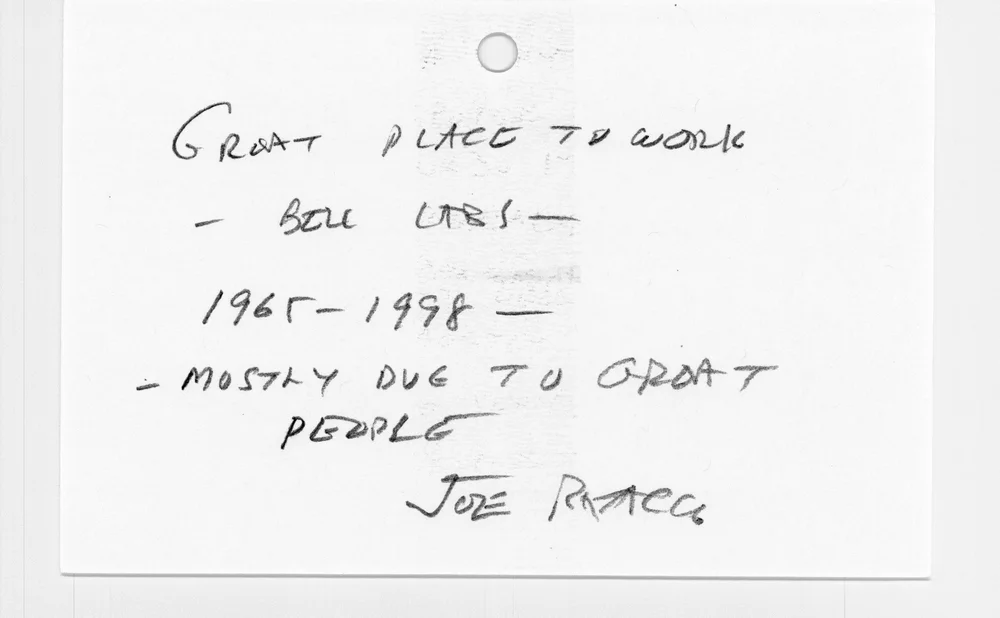 GREAT PLACE TO WORK
- BELL LABS —
1965 - 1998 —
- MOSTLY DUE TO GREAT
PEOPLE
JOE